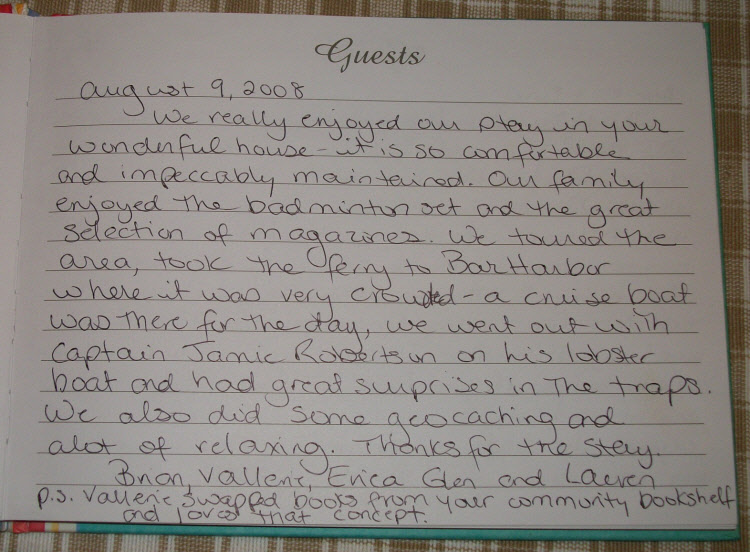 Guests
August 9, 2008
We really enjoyed our stay in your
wonderful house - it is so comfortable
and impeccably maintained. Our family
enjoyed the badminton set and the great
selection of magazines. We toured the
area, took the ferry to Bar Harbor
where it was very crowded - a cruise boat
was there for the day, we went out with
Captain Jamie Robertson on his lobster
boat and had great surprises in the traps.
We also did some geocaching and
alot of relaxing. Thanks for the stay.
Brian, Vallerie, Erica Glen and Lauren
p.s. Vallerie swapped books from your community bookshelf
and loves that concept.